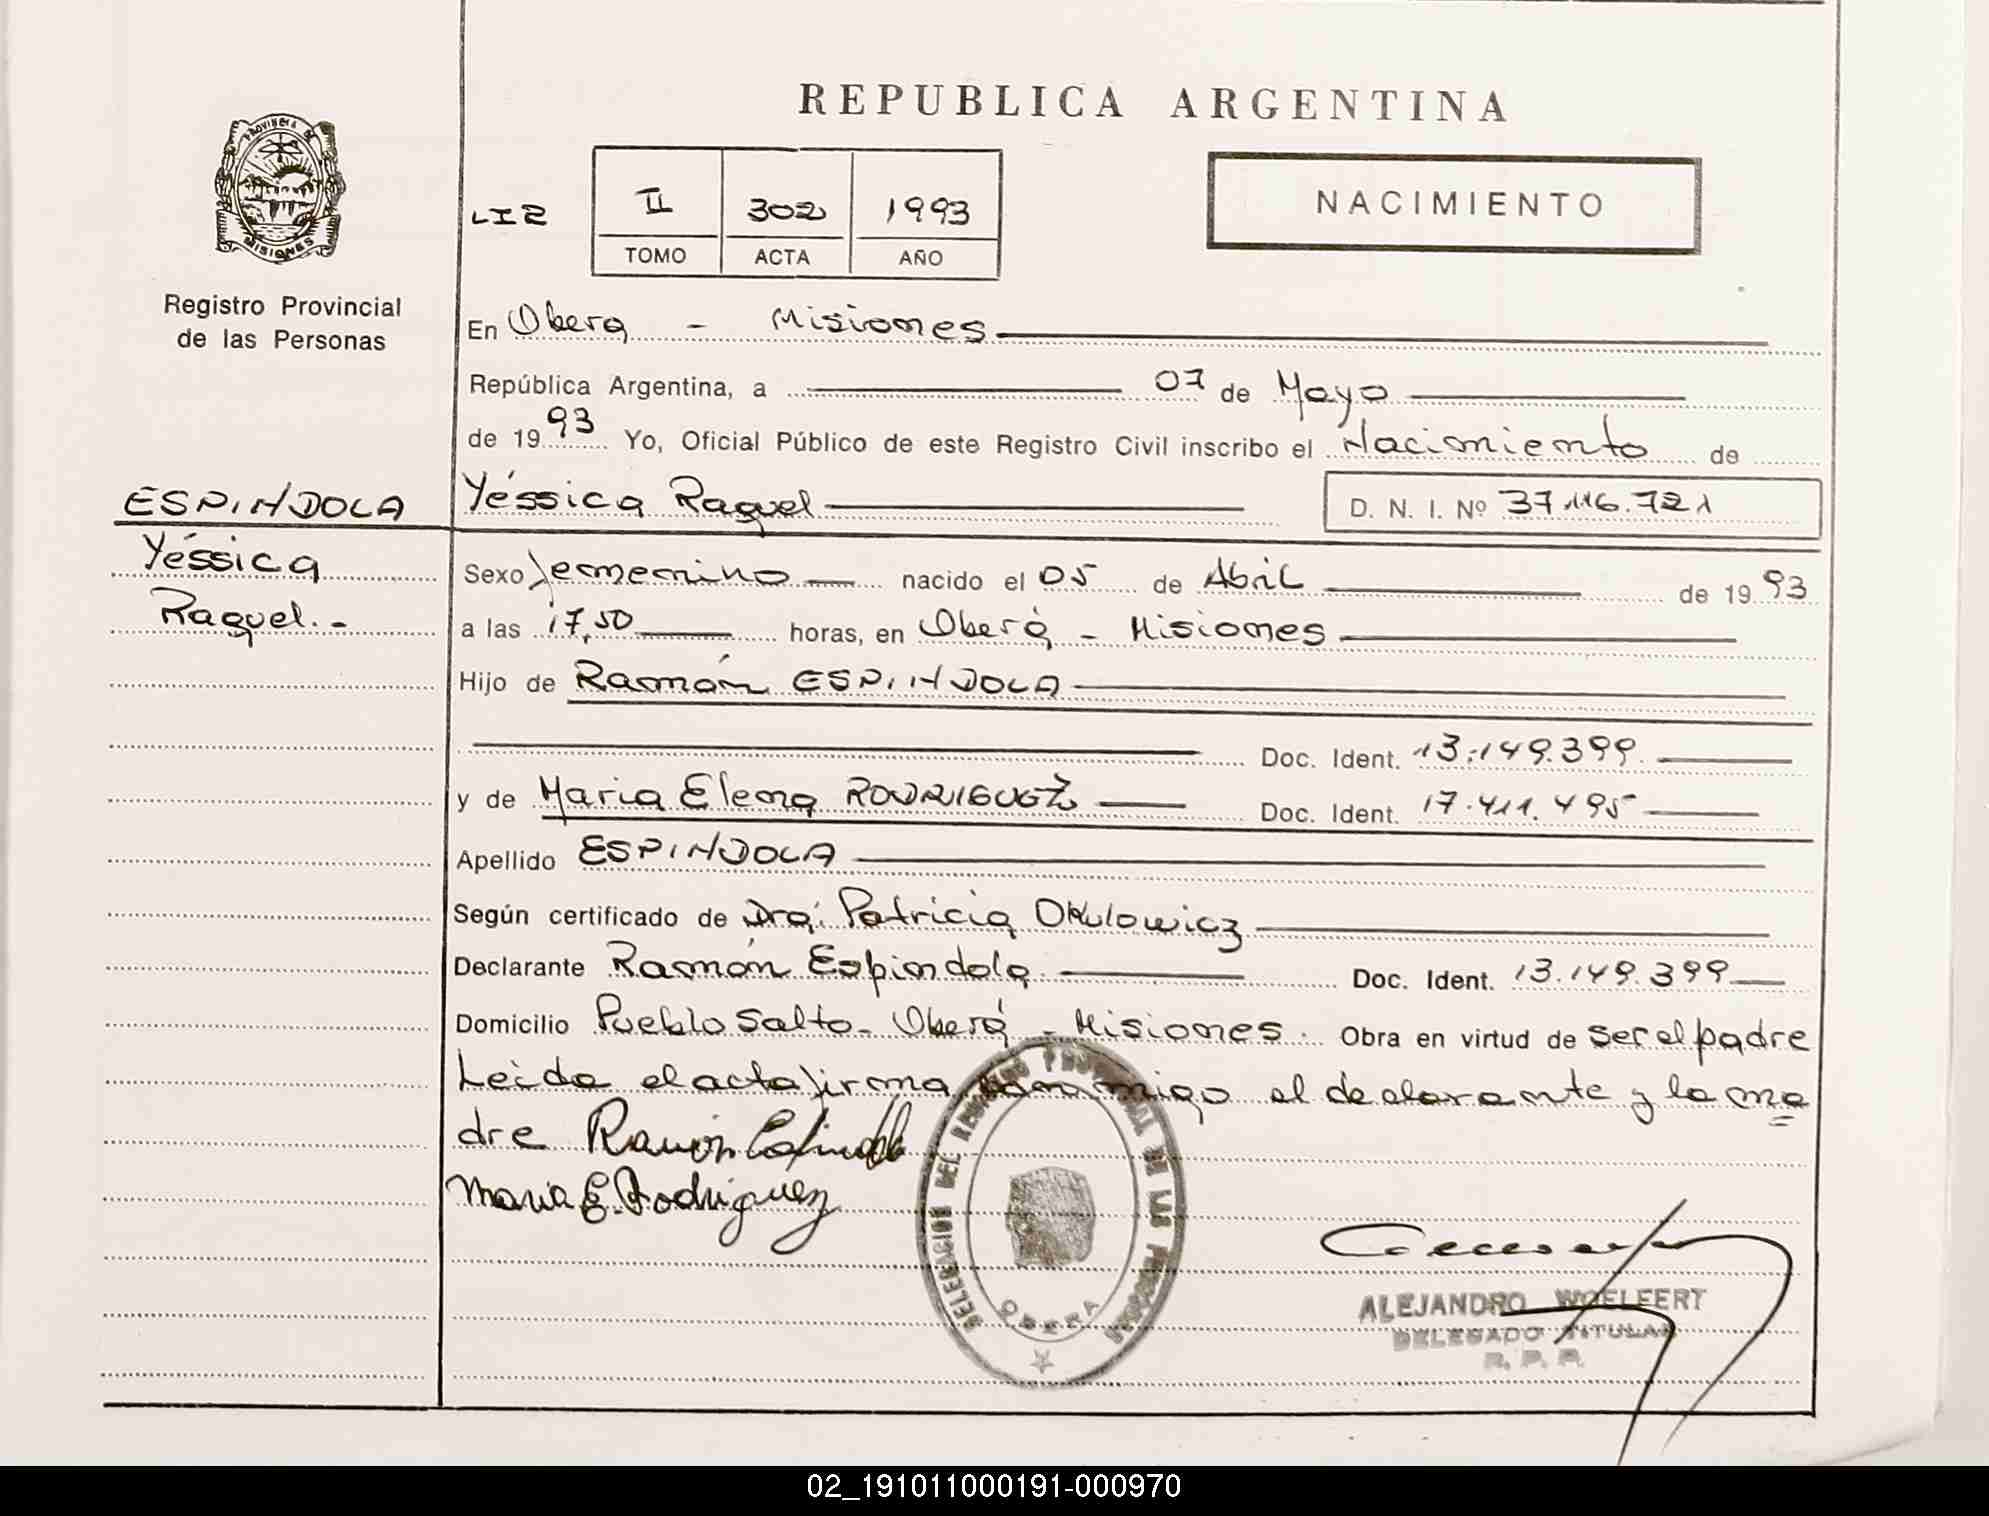 REPUBLICA ARGENTINA
PROVINCIA DE MISIONES
Registro Provincial
de las Personas
LIZ
II 302 1993
TOMO ACTA AÑO
NACIMIENTO
En Obera - Misiones
República Argentina, a 07 de Mayo
de 1993 Yo, Oficial Público de este Registro Civil inscribo el Nacimiento de
ESPINDOLA
Yéssica
Raquel.-
Yéssica Raquel D. N. I. Nº 37.116.721
Sexo femenino nacido el 05 de Abril de 1993
a las 17,50 horas, en Oberá - Misiones
Hijo de Ramón ESPINDOLA
Doc. Ident. 13.149.399.
y de Maria Elena RODRIGUEZ Doc. Ident. 17.411.495
Apellido ESPINDOLA
Según certificado de Dra. Patricia Okulowicz
Declarante Ramón Espindola Doc. Ident. 13.149.399
Domicilio Pueblo Salto - Oberá - Misiones. Obra en virtud de ser el padre
Leida el acta firma conmigo el declarante y la ma
dre Ramón Espindola
Maria E. Rodriguez
DELEGACION DEL REGISTRO PROVINCIAL DE LAS PERSONAS
OBERA
ALEJANDRO WOELFERT
DELEGADO TITULAR
R. P. P.
02_191011000191-000970